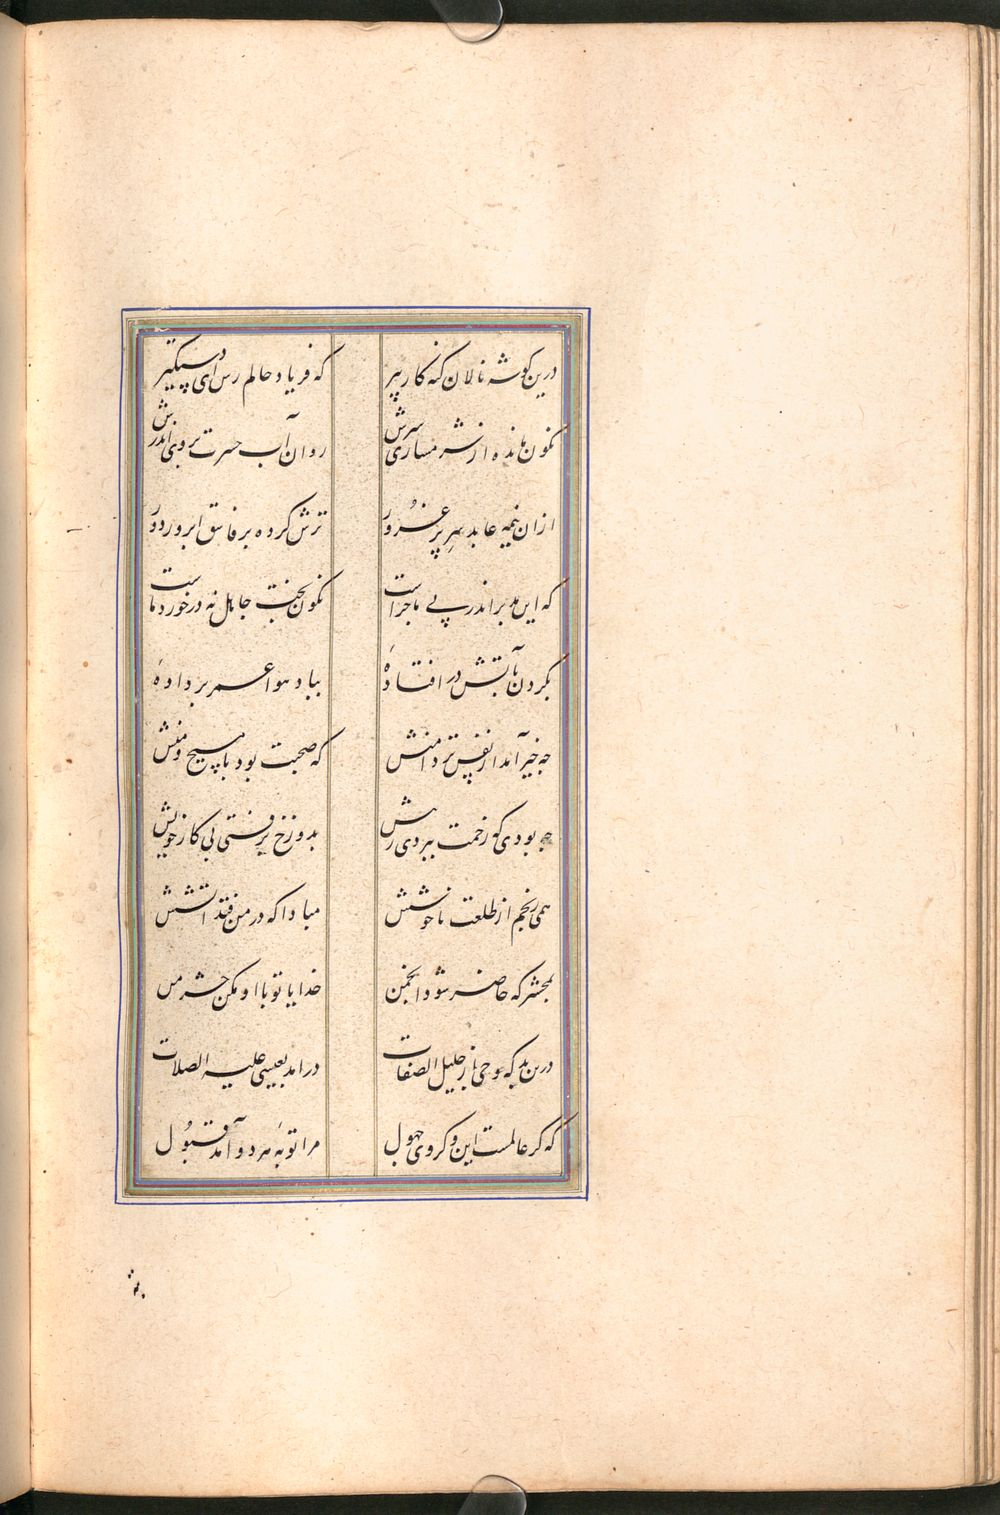 درین گوشه نالان گنه کار پیر که فریاد حالم رس ای دستگیر
نگون مانده از شرمساری سرش روان آب حسرت بروی اندرش
ازان نیمه عابد سری پر غرور ترش کرده بر فاسق ابرو ز دور
که این مدبر اندر پی ما چراست نگون بخت جاهل نه درخورد ماست
بگردن بآتش در افتادهٔ بباد هوا عمر بر دادهٔ
چه خیر آمد از نفس تر دامنش که صحبت بود با مسیح و منش
چه بودی که زحمت ببردی ز پیش بدوزخ برفتی پی کار خویش
همی رنجم از طلعت ناخوشش مبادا که در من فتد آتشش
بمحشر که حاضر شود انجمن خدایا تو با او مکن حشر من
درین بد که وحی از جلیل الصفات درامد بعیسی علیه الصلات
که گر عالمست این و گر وی جهول مرا توبهٔ هر دو آمد قبول